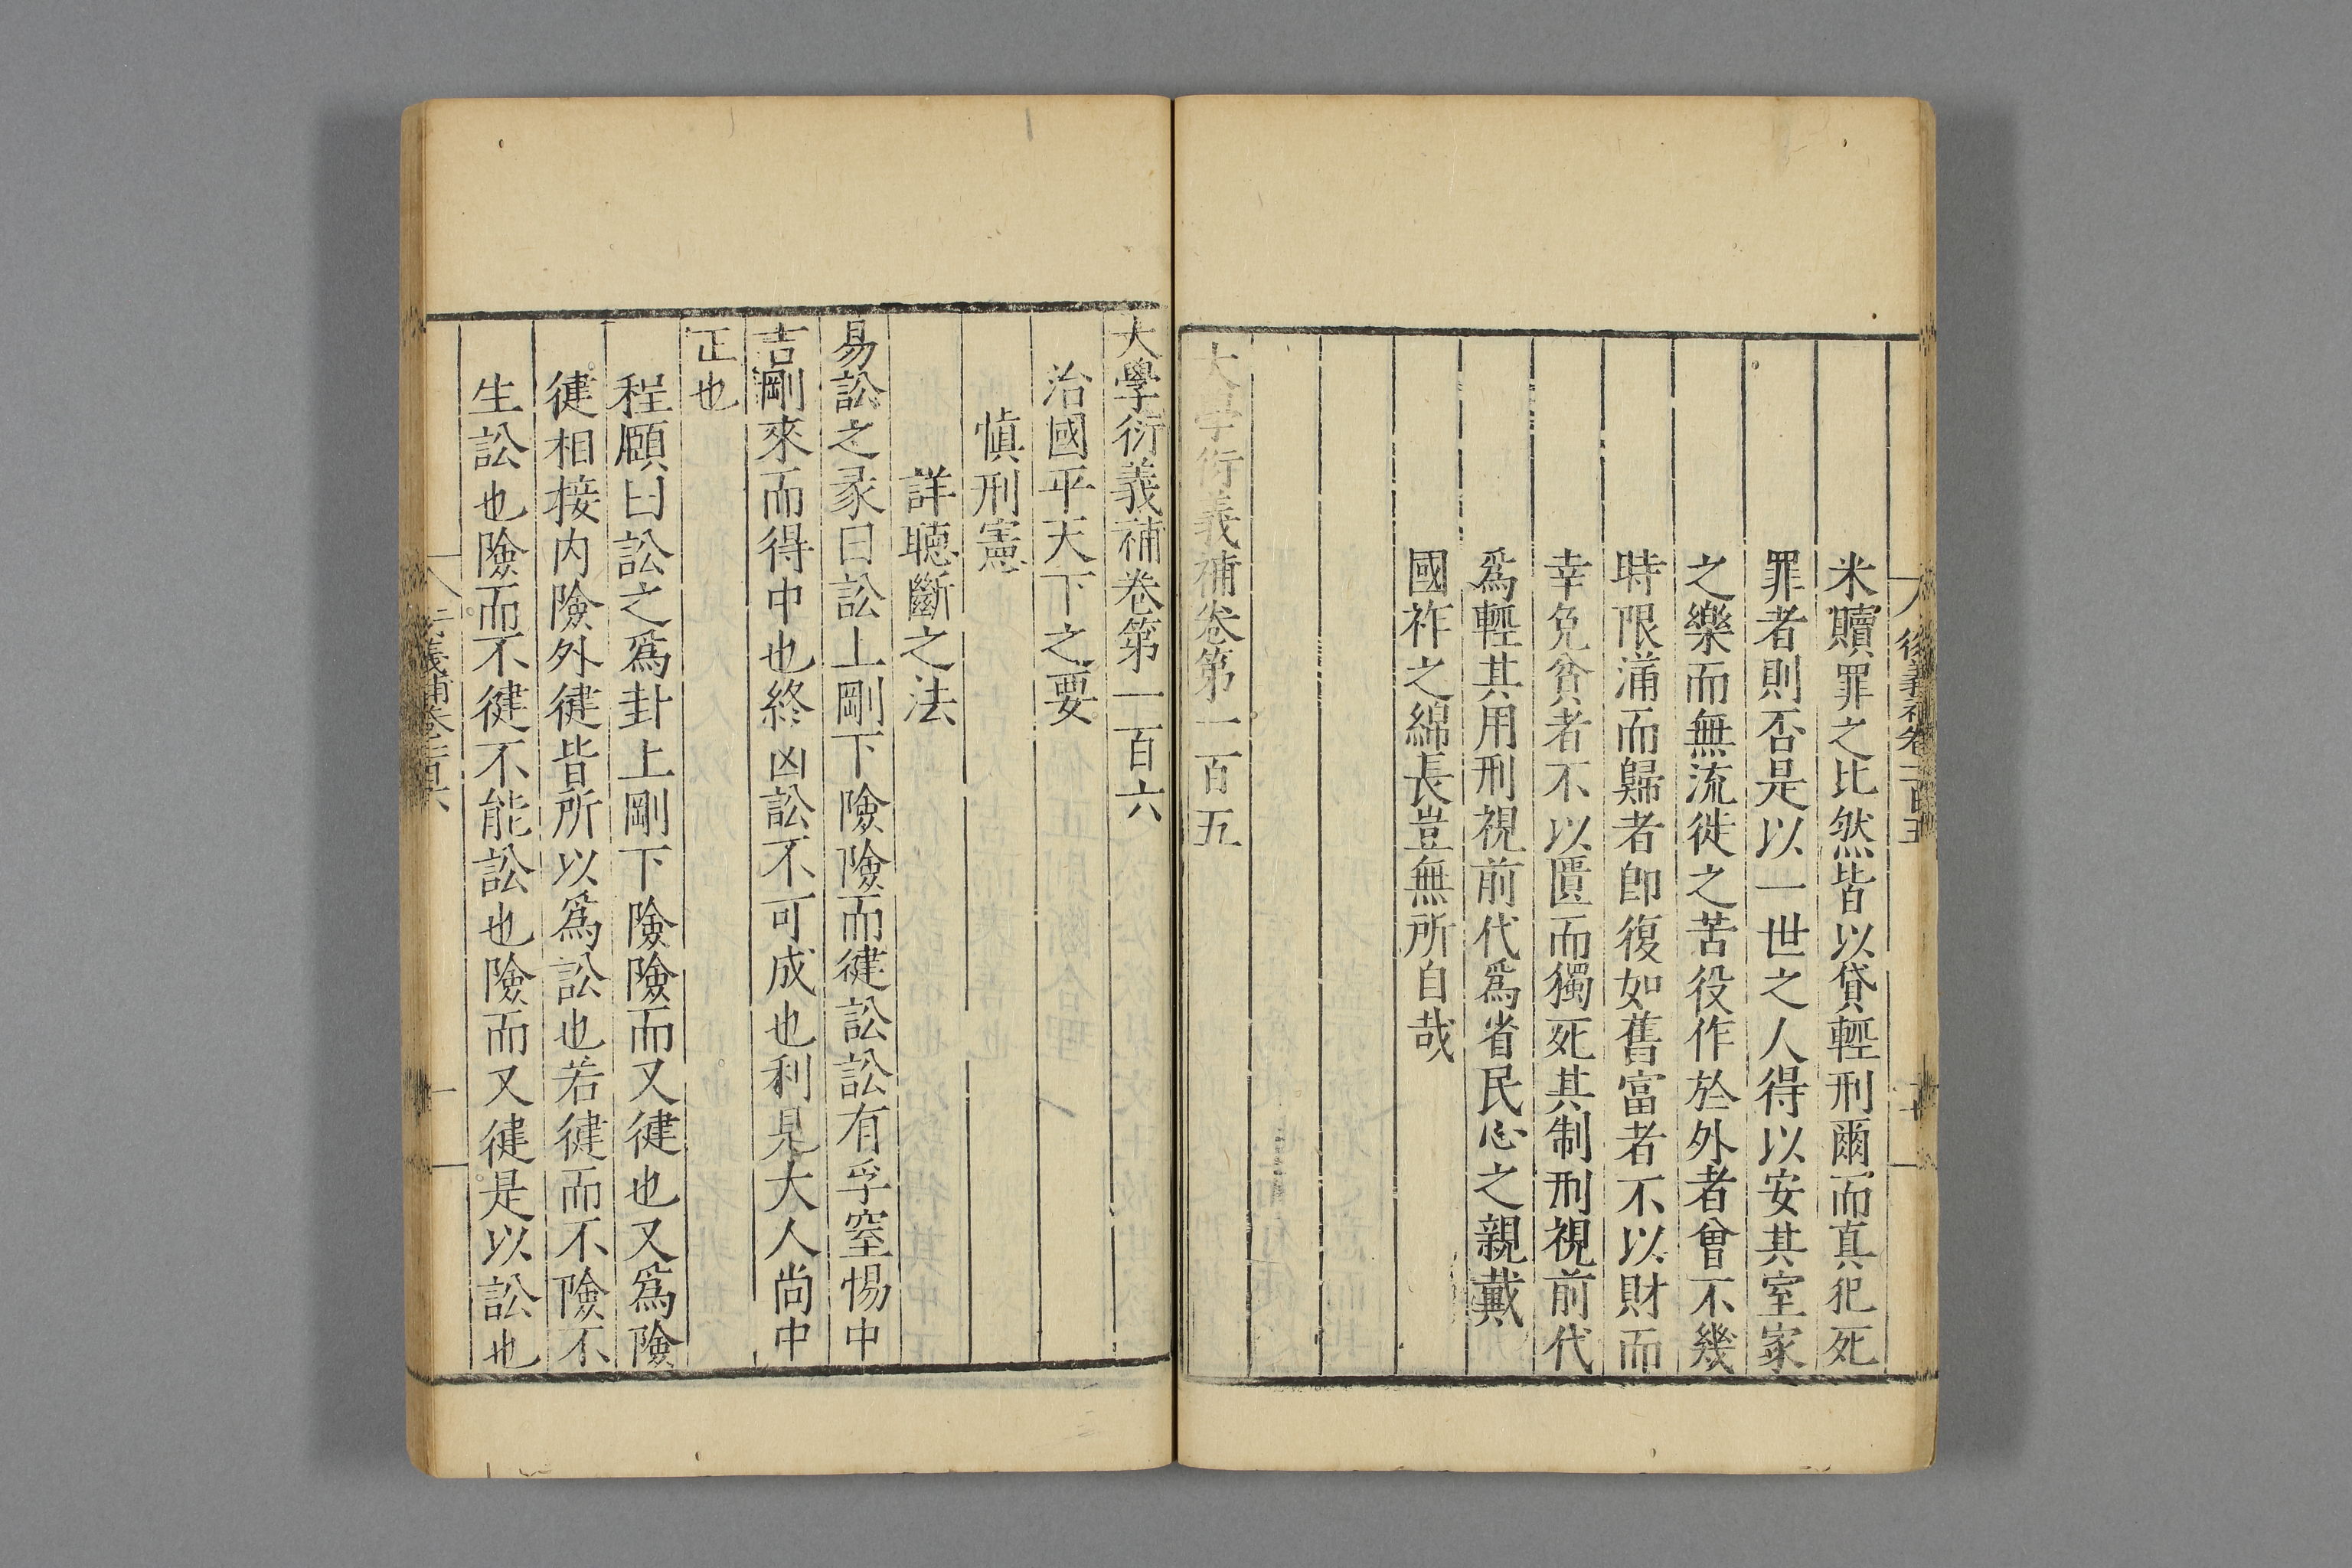 米贖罪之比然皆以貸輕刑爾而真犯死
罪者則否是以一世之人得以安其室家
之樂而無流徙之苦役作於外者曾不幾
時限滿而歸者卽復如舊富者不以財而
幸免貧者不以匱而獨死其制刑視前代
爲輕其用刑視前代爲省民心之親戴
國祚之綿長豈無所自哉
大學衍義補卷第一百五
大學衍義補卷第一百六
治國平天下之要
慎刑憲
詳聽斷之法
易訟之彖曰訟上剛下險險而健訟訟有孚窒惕中
吉剛來而得中也終凶訟不可成也利見大人尚中
正也
程頤曰訟之爲卦上剛下險險而又健也又爲險
健相接内險外健皆所以爲訟也若健而不險不
生訟也險而不健不能訟也險而又健是以訟也
義補卷一百六
一